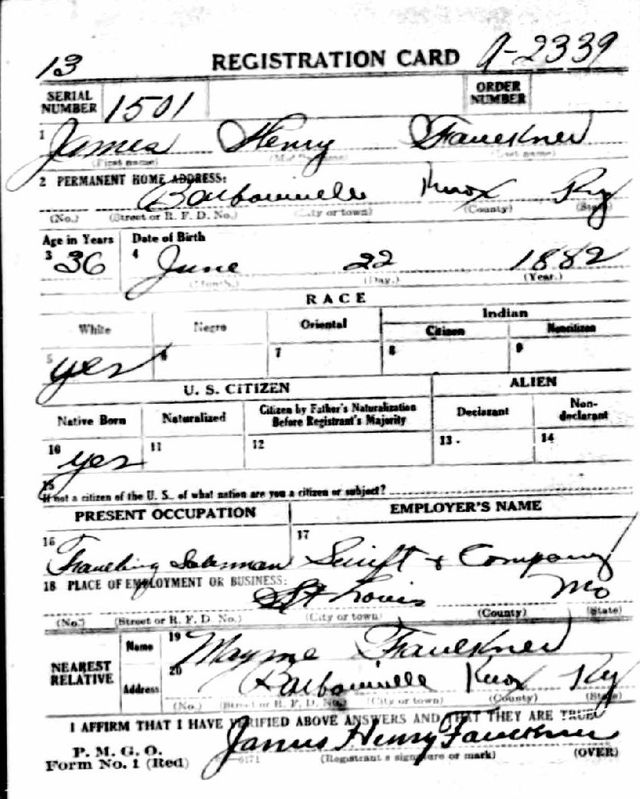 13 REGISTRATION CARD 9-2339
SERIAL NUMBER 1501 ORDER NUMBER
1 James Henry Faulkner
(First name) (Middle name) (Last name)
2 PERMANENT HOME ADDRESS:
Barbourville Knox Ky
(No.) (Street or R. F. D. No.) (City or town) (County) (State)
Age in Years Date of Birth
3 36 4 June 22 1882
(Month.) (Day.) (Year.)
RACE
White Negro Oriental Indian
Citizen Noncitizen
5 yes 6 7 8 9
U. S. CITIZEN ALIEN
Native Born Naturalized Citizen by Father's Naturalization Before Registrant's Majority Declarant Non-declarant
10 yes 11 12 13 14
15
If not a citizen of the U. S., of what nation are you a citizen or subject?
PRESENT OCCUPATION EMPLOYER'S NAME
16 Traveling Salesman 17 Swift & Company
18 PLACE OF EMPLOYMENT OR BUSINESS:
St Louis Mo
(No.) (Street or R. F. D. No.) (City or town) (County) (State)
NEAREST RELATIVE
Name 19 Mayme Faulkner
Address 20 Barbourville Knox Ky
(No.) (Street or R. F. D. No.) (City or town) (County) (State)
I AFFIRM THAT I HAVE VERIFIED ABOVE ANSWERS AND THAT THEY ARE TRUE
P. M. G. O.
Form No. 1 (Red) James Henry Faulkner
(Registrant's signature or mark) (OVER)